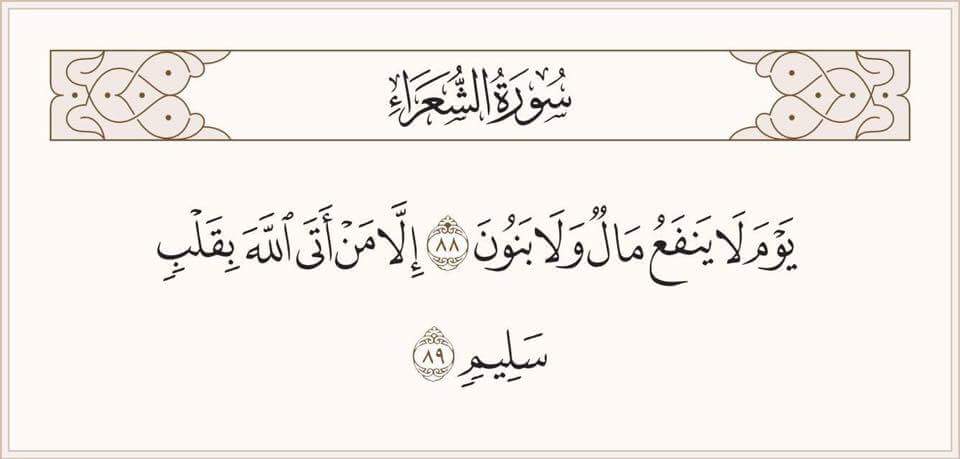 سُورَةُ الشُّعَرَاءِ
يَوْمَ لَا يَنفَعُ مَالٌ وَلَا بَنُونَ ٨٨ إِلَّا مَنْ أَتَى ٱللَّهَ بِقَلْبٍ
سَلِيمٍ ٨٩